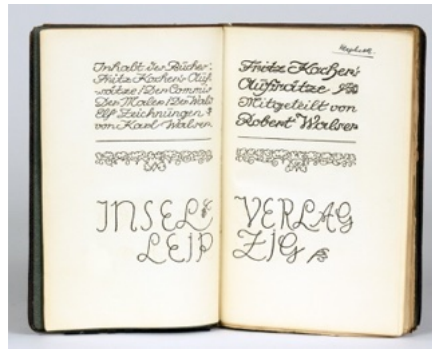 Inhalt des Buches:
Fritz Kochers Auf=
sätze / Der Commis
Der Maler / Der Wald
Elf Zeichnungen
von Karl Walser
INSEL=
LEIP
Fritz Kochers
Aufsätze
Mitgeteilt von
Robert Walser
VERLAG
ZIG